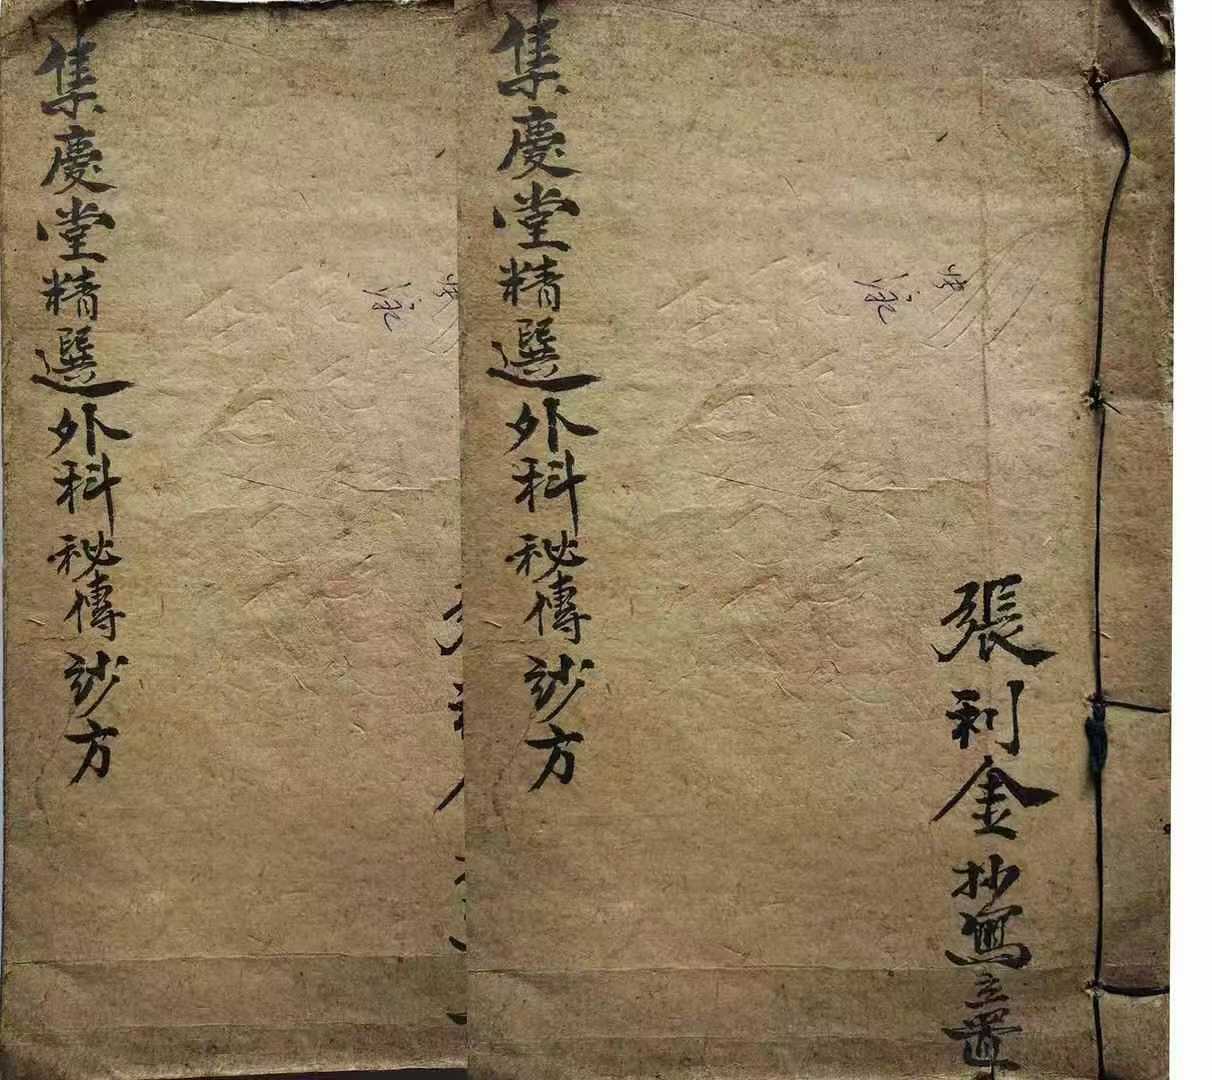 張利金抄寫立置
集慶堂精選外科秘傳竗方
集慶堂精選外科秘傳竗方